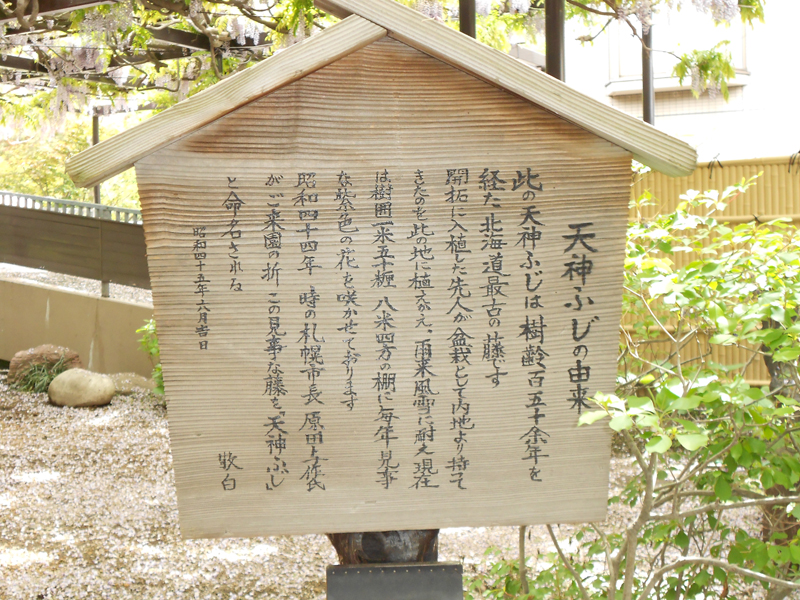 天神ふじの由来
此の天神ふじは樹齢百五十余年を
経た北海道最古の藤です
開拓に入植した先人が盆栽として内地より持て
きたのを此の地に植えがえ、雨来風雪に耐え現在
は樹囲一米五十糎 八米四方の棚に毎年見事
な紫色の花を咲かせております
昭和四十四年 時の札幌市長 原田与作氏
がご来園の折 この見事な藤を「天神ふじ」
と命名される
昭和四十五年六月吉日
敬白